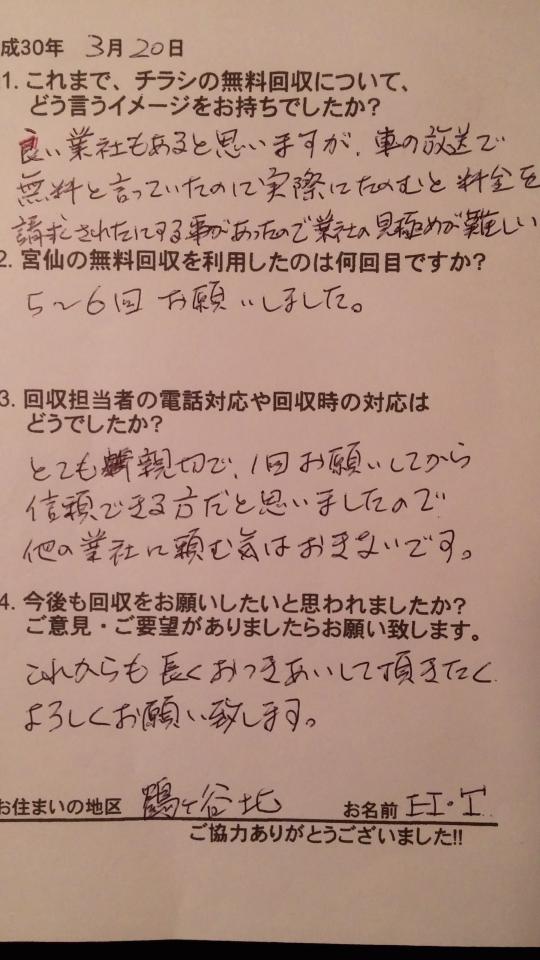 成30年 3月20日
1. これまで、チラシの無料回収について、
どう言うイメージをお持ちでしたか?
良い業社もあると思いますが、車の放送で
無料と言っていたのに実際にたのむと料金を
請求されたにする事があったので業社の見極めが難しい
2. 宮仙の無料回収を利用したのは何回目ですか?
5～6回 お願いしました。
3. 回収担当者の電話対応や回収時の対応は
どうでしたか?
とても親切で、1回お願いしてから
信頼できる方だと思いましたので
他の業社に頼む気はおきないです。
4. 今後も回収をお願いしたいと思われましたか?
ご意見・ご要望がありましたらお願い致します。
これからも長くおつきあいして頂きたく
よろしくお願い致します。
お住まいの地区 鶴ヶ谷北 お名前
ご協力ありがとうございました!!